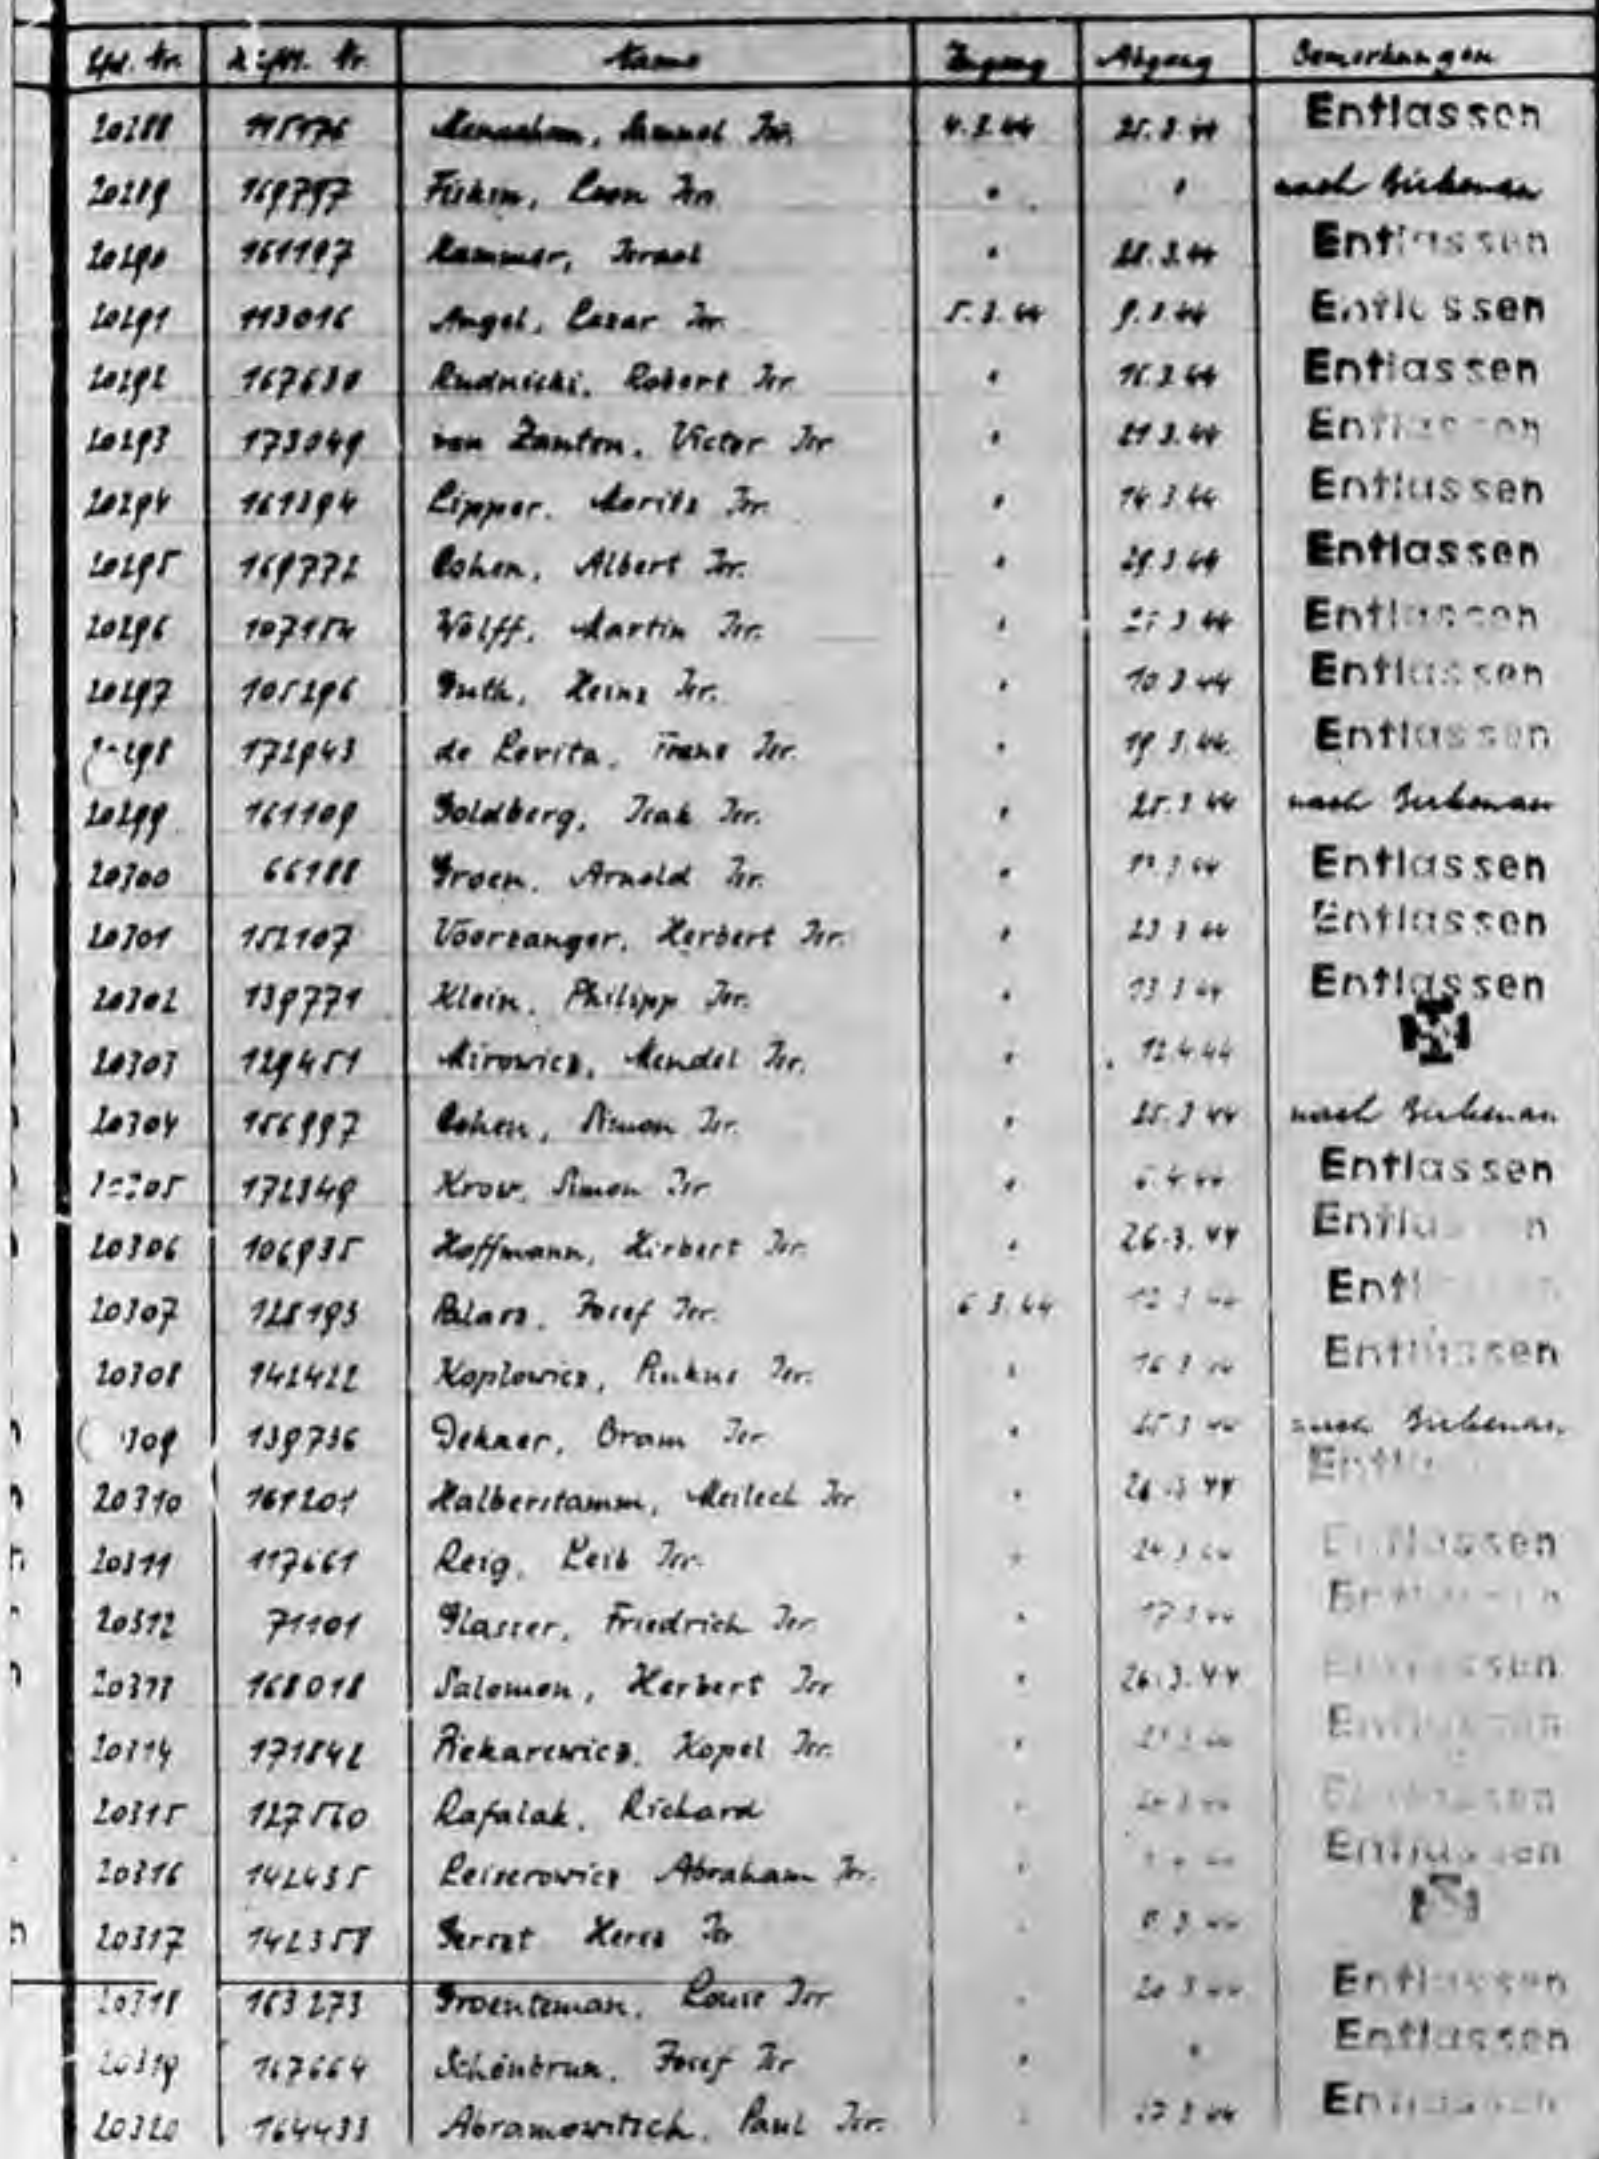 Lfd. Nr. Häftl. Nr. Name Zugang Abgang Bemerkungen
20288 115176 Menachem, Samuel Isr. 4.3.44 25.3.44 Entlassen
20289 169797 Leon Isr. " " nach Birkenau
20290 161197 Kammer, Israel " 28.3.44 Entlassen
20291 113016 Angel, Lazar Isr. 5.3.44 9.3.44 Entlassen
20292 167630 Rudnicki, Robert Isr. " 16.3.44 Entlassen
20293 173049 van Zanten, Victor Isr. " 21.3.44 Entlassen
20294 161394 Lipper, Moritz Isr. " 14.3.44 Entlassen
20295 169772 Cohen, Albert Isr. " 29.3.44 Entlassen
20296 107154 Wolff, Martin Isr. " Entlassen
20297 105296 Guth, Heinz Isr. " 10.3.44 Entlassen
172943 de Levita, Frans Isr. " 19.3.44 Entlassen
20299 161109 Goldberg, Isak Isr. " 25.3.44 nach Birkenau
20300 66188 Groen, Arnold Isr. " Entlassen
20301 152107 Voorzanger, Herbert Isr. " 23.3.44 Entlassen
20302 139771 Klein, Philipp Isr. " 13.3.44 Entlassen
20303 129451 Mirowicz, Mendel Isr. " 12.4.44
20304 156997 Cohen, Simon Isr. " 25.3.44 nach Birkenau
20305 172349 Krow, Simon Isr. " 6.4.44 Entlassen
20306 106935 Hoffmann, Herbert Isr. " 26.3.44 Entlassen
20307 128193 Josef Isr. 6.3.44 12.3.44 Entlassen
20308 142422 Koplowicz, Pinkus Isr. " 16.3.44 Entlassen
139736 Dekner, Bram Isr. " 25.3.44 nach Birkenau
20310 161201 Halberstamm, Meilech Isr. " 26.3.44 Entlassen
20311 117661 Reig, Leib Isr. " 24.3.44 Entlassen
20312 71101 Glasser, Friedrich Isr. " 17.3.44 Entlassen
20313 168018 Salomon, Herbert Isr. " 26.3.44 Entlassen
20314 171842 Piekarewicz, Kopel Isr. " Entlassen
20315 127560 Rafalak, Richard " Entlassen
20316 142435 Leiserowicz Abraham Isr. " Entlassen
20317 142358 Gerszt Hersz Isr. "
20318 163273 Groenteman, Louis Isr. " 20.3.44 Entlassen
20319 167664 Schönbrun, Josef Isr. " " Entlassen
20320 164433 Abramowitsch, Paul Isr. " Entlassen